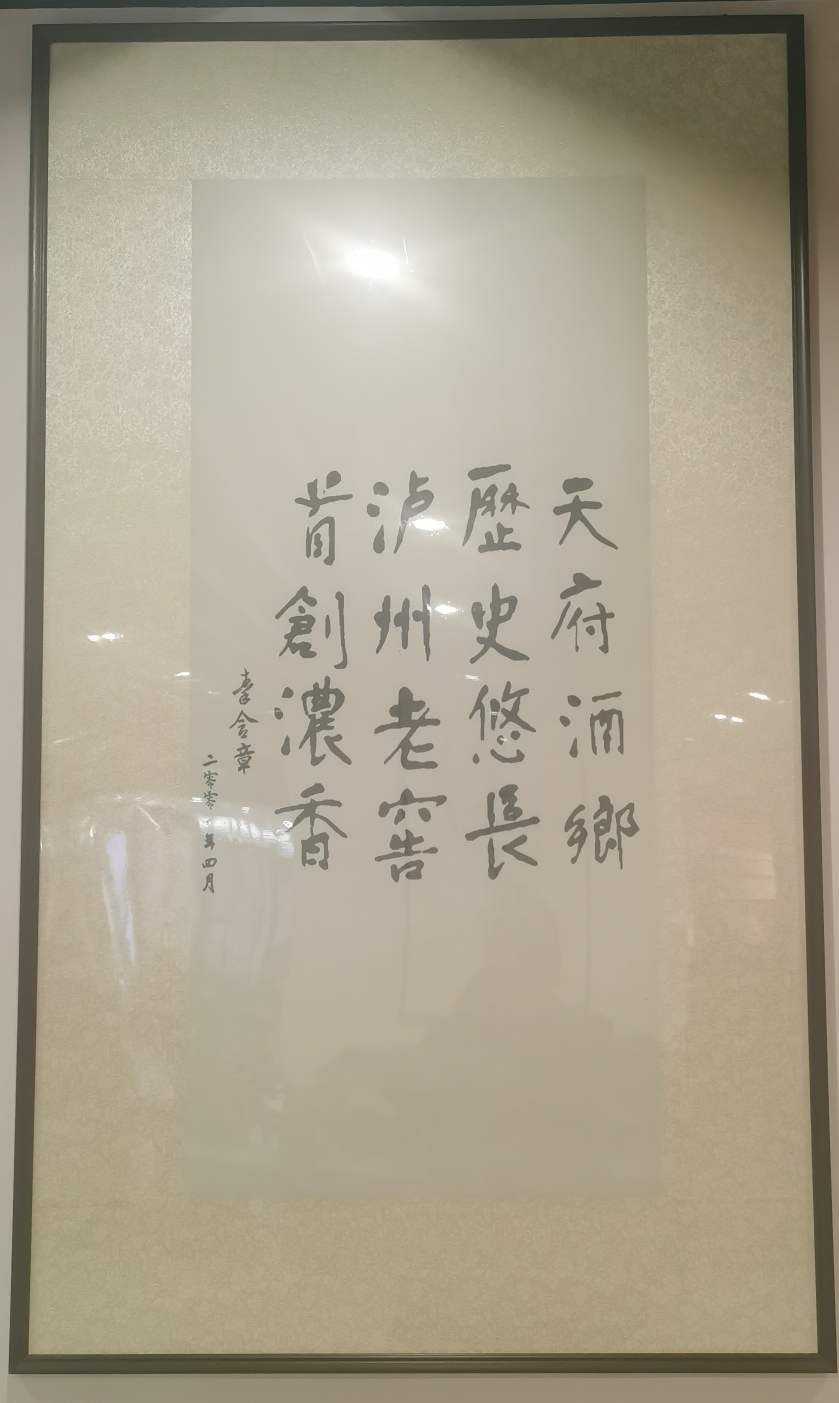 天府酒鄉
歷史悠長
泸州老窖
首創濃香
秦含章
二零零年四月